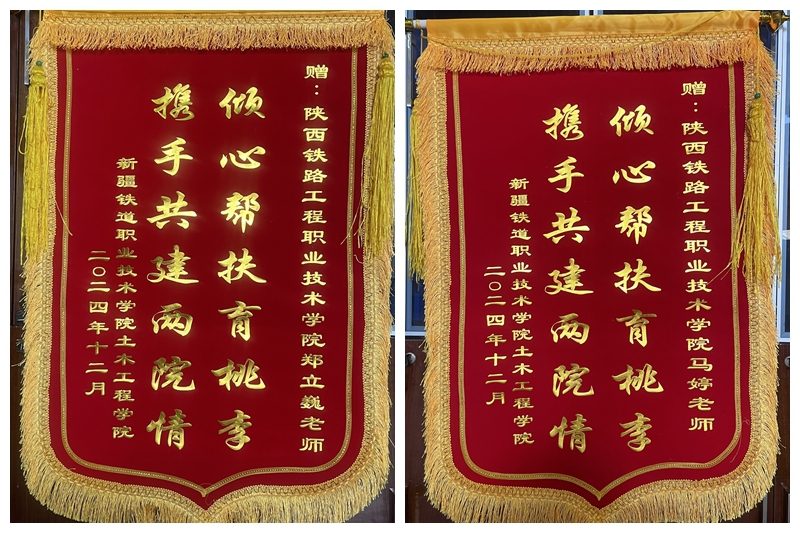 赠：陕西铁路工程职业技术学院郑立巍老师
倾心帮扶育桃李
携手共建两院情
新疆铁道职业技术学院土木工程学院
二〇二四年十二月
赠：陕西铁路工程职业技术学院马婷老师
倾心帮扶育桃李
携手共建两院情
新疆铁道职业技术学院土木工程学院
二〇二四年十二月